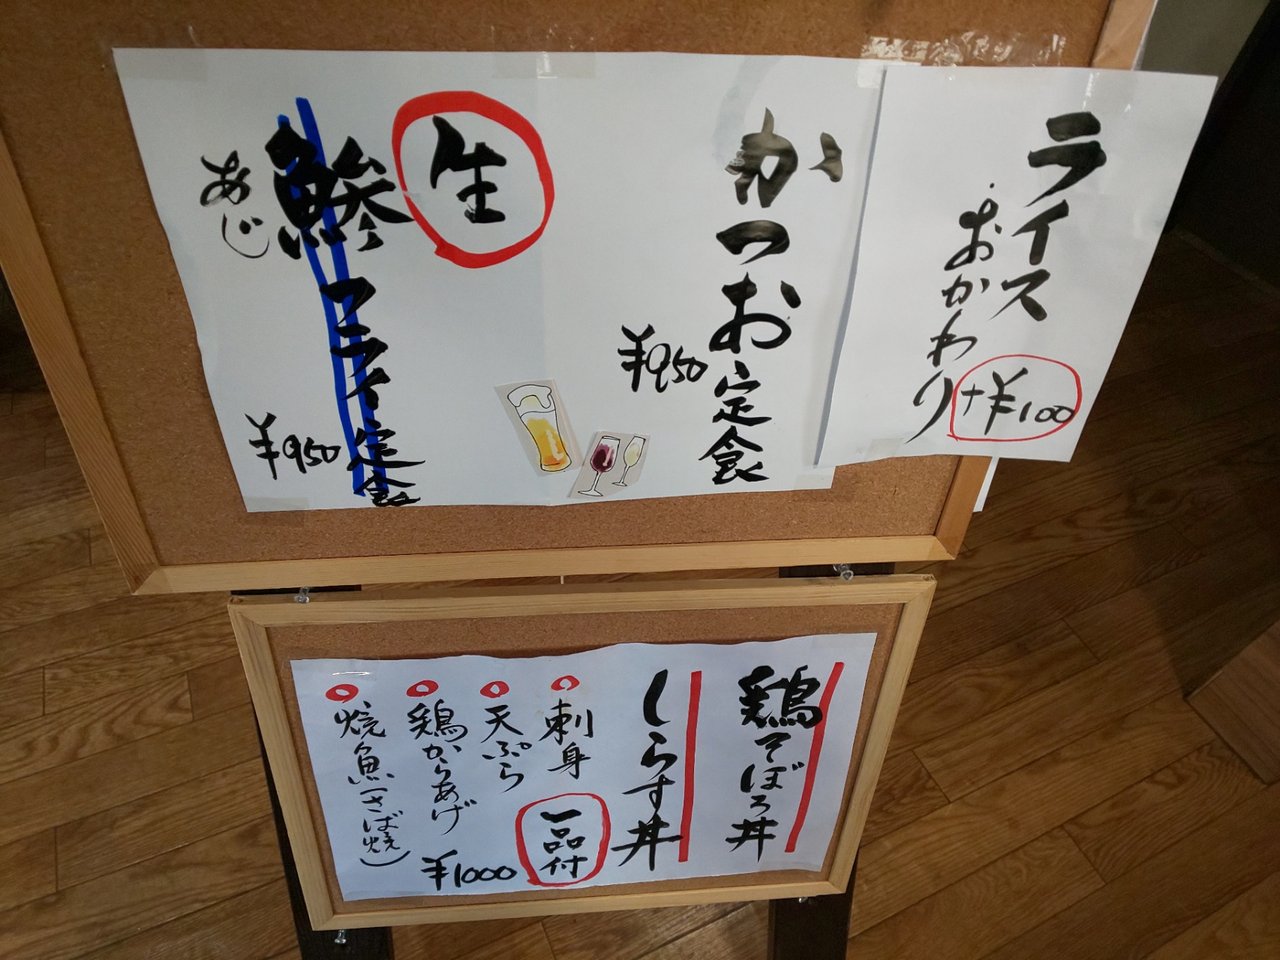 ライス
おかわり
+¥100
かつお定食
¥950
生
鯵フライ定食
あじ
¥950
鶏そぼろ丼
しらす丼
一品付
刺身
天ぷら
鶏からあげ
焼魚(さば焼)
¥1000